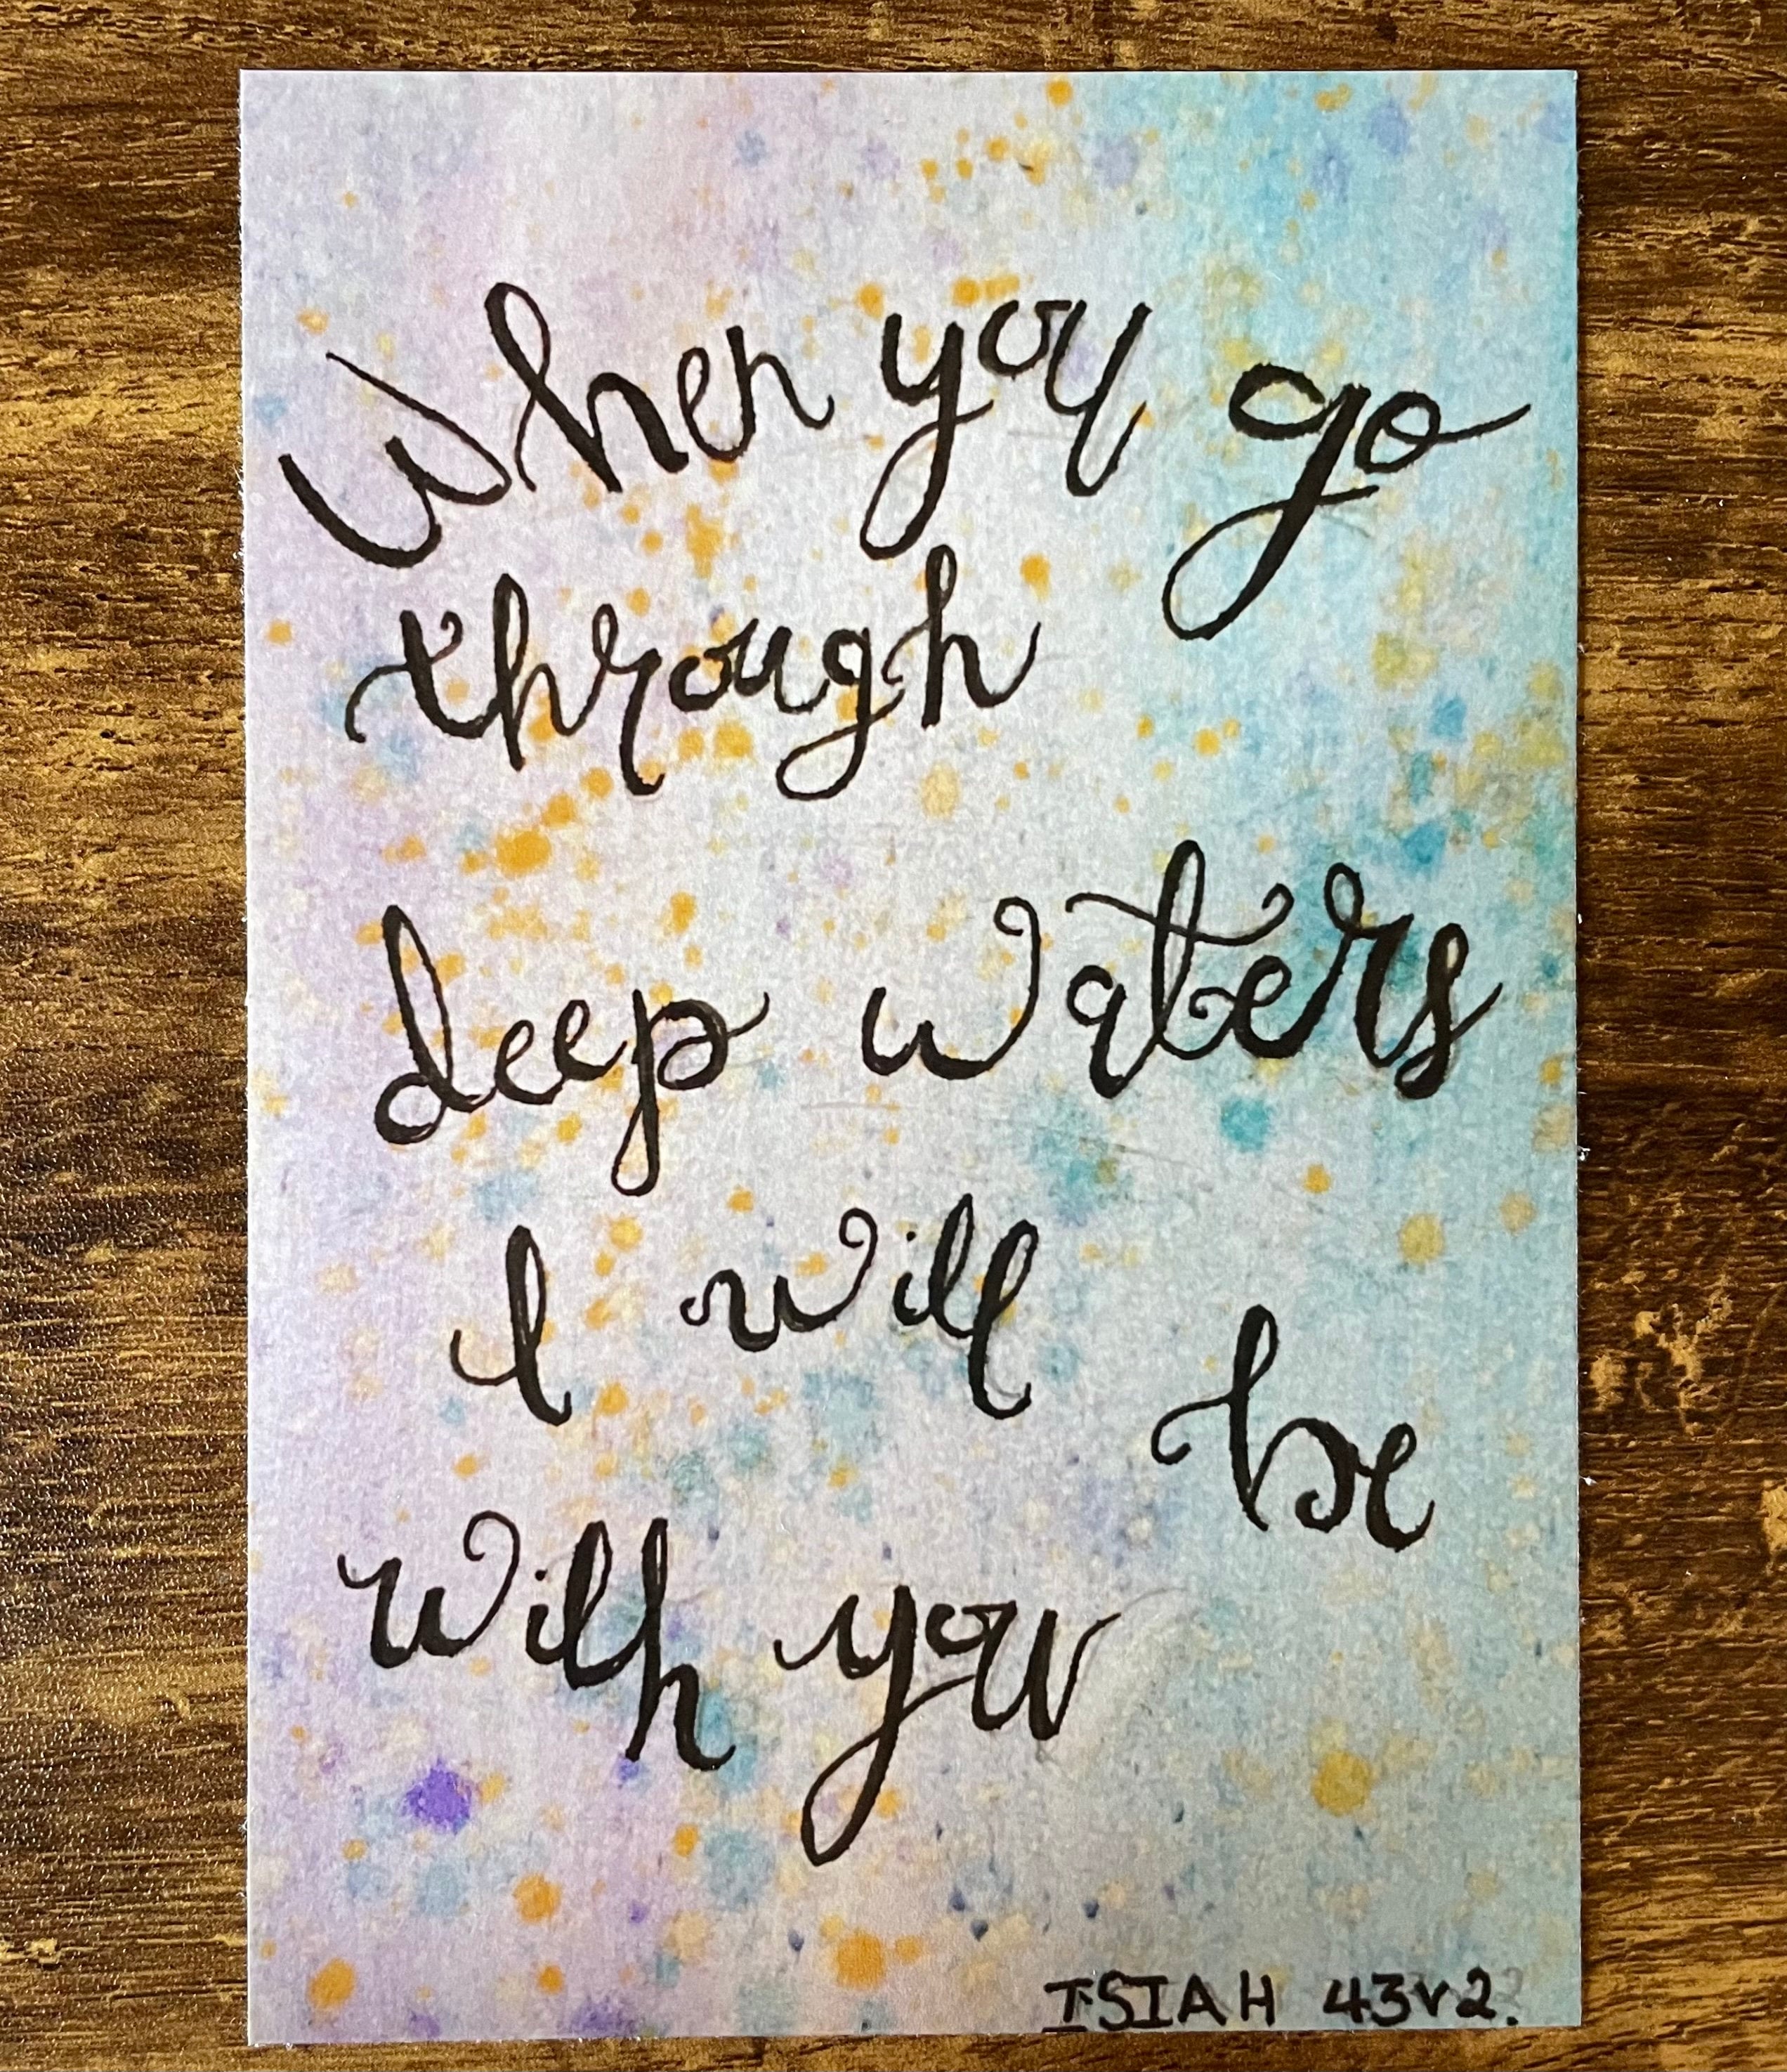 When you go
through
deep waters
I will be
with you
ISIAH 43v2.